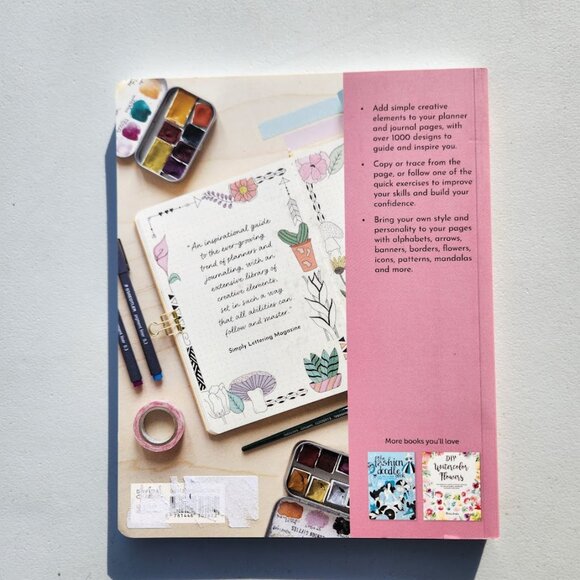 • Add simple creative
elements to your planner
and journal pages, with
over 1000 designs to
guide and inspire you.
• Copy or trace from the
page, or follow one of the
quick exercises to improve
your skills and build your
confidence.
• Bring your own style and
personality to your pages
with alphabets, arrows,
banners, borders, flowers,
icons, patterns, mandalas
and more.
"An inspirational guide
to the ever-growing
trend of planners and
journaling, with an
extensive library of
creative elements
set in such a way
that all abilities can
follow and master."
Simply Lettering Magazine
STAEDTLER pigment liner 0.3
More books you'll love
fashion
doodle
DIY
Watercolor
Flowers